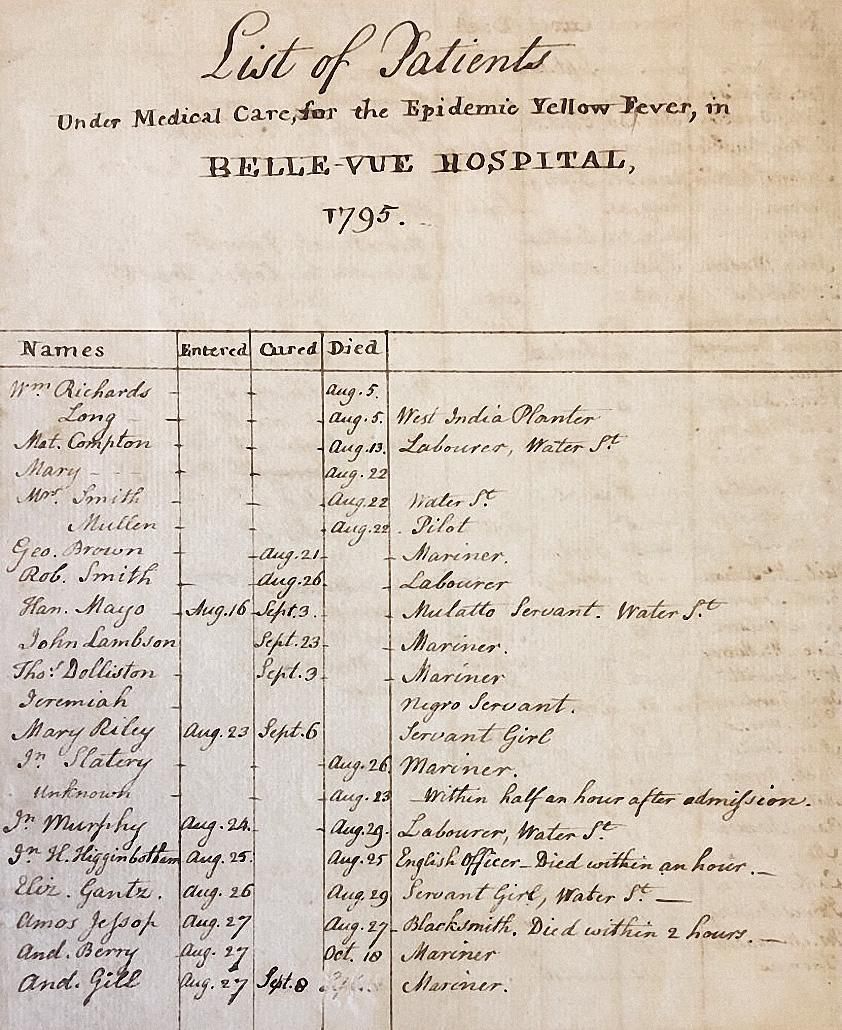 List of Patients
Under Medical Care, for the Epidemic Yellow Fever, in
BELLE-VUE HOSPITAL,
1795.
Names Entered Cured Died
Wm. Richards Aug. 5.
Long Aug. 5. West India Planter
Mat. Compton Aug. 13. Labourer, Water St.
Mary Aug. 22
Mrs. Smith Aug. 22 Water St.
Mullen Aug. 22. Pilot
Geo. Brown Aug. 21 Mariner.
Rob. Smith Aug. 26 Labourer
Han. Mayo Aug. 16 Sept. 3. Mulatto Servant. Water St.
John Lambson Sept. 23 Mariner.
Thos. Dolliston Sept. 3 Mariner
Jeremiah Negro Servant.
Mary Riley Aug. 23 Sept. 6 Servant Girl
Jn. Slatery Aug. 26. Mariner.
Unknown Aug. 23 Within half an hour after admission.
Jn. Murphy Aug. 24. Aug. 29. Labourer, Water St.
Jn. H. Higginbotham Aug. 25. Aug. 25 English Officer - Died within an hour. -
Eliz. Gantz. Aug. 26 Aug. 29 Servant Girl, Water St. -
Amos Jessop Aug. 27 Aug. 27 Blacksmith. Died within 2 hours. -
And. Berry Aug. 27 Oct. 18 Mariner
And. Gill Aug. 27 Sept. 8 Mariner.